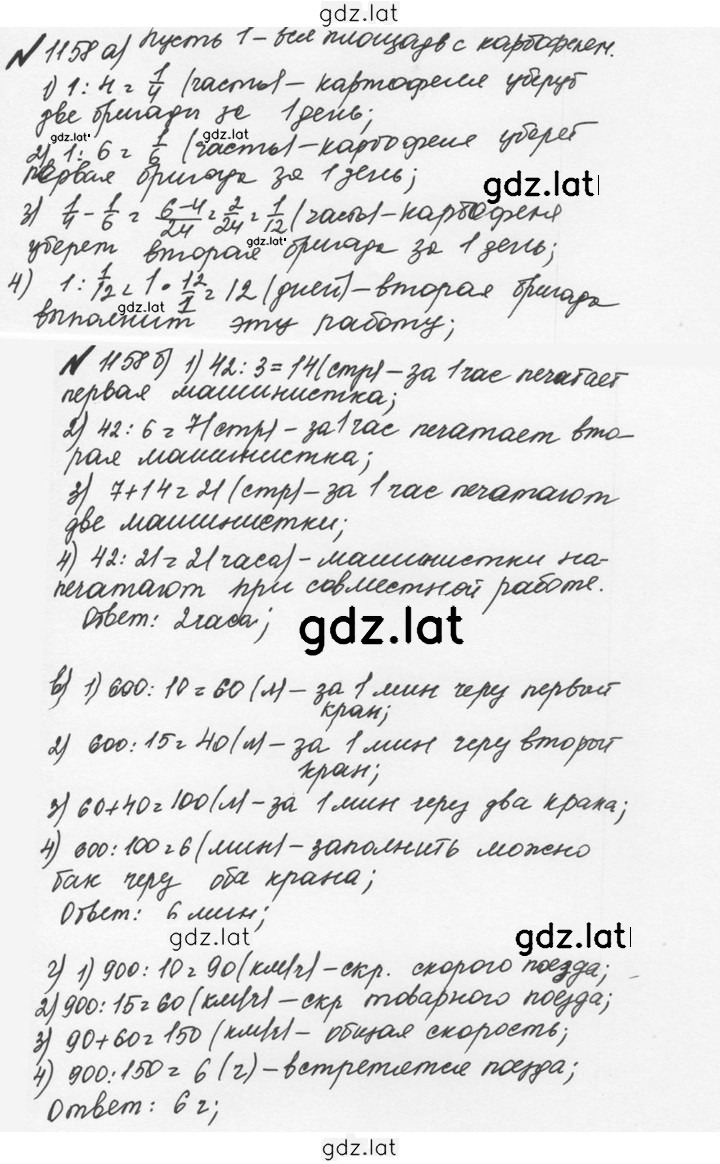 gdz.lat
№ 1158 а) Пусть 1 – вся площадь с картофелем.
1) 1 : 4 = 1/4 (часть) – картофеля уберут
две бригады за 1 день;
gdz.lat gdz.lat
2) 1 : 6 = 1/6 (часть) – картофеля уберет
первая бригада за 1 день;
gdz.lat
3) 1/4 - 1/6 = 6-4/24 = 2/24 = 1/12 (часть) – картофеля
уберет вторая бригада за 1 день;
gdz.lat
4) 1 : 1/12 = 1 · 12/1 = 12 (дней) – вторая бригада
gdz.lat
выполнит эту работу;
№ 1158 б) 1) 42 : 3 = 14 (стр) – за 1 час печатает
первая машинистка;
2) 42 : 6 = 7 (стр) – за 1 час печатает вто-
рая машинистка;
3) 7 + 14 = 21 (стр) – за 1 час печатают
две машинистки;
4) 42 : 21 = 2 (часа) – машинистки на-
печатают при совместной работе.
Ответ: 2 часа;
gdz.lat
в) 1) 600 : 10 = 60 (л) – за 1 мин через первый
кран;
2) 600 : 15 = 40 (л) – за 1 мин через второй
кран;
3) 60 + 40 = 100 (л) – за 1 мин через два крана;
4) 600 : 100 = 6 (мин) – заполнить можно
бак через оба крана;
Ответ: 6 мин;
gdz.lat gdz.lat
г) 1) 900 : 10 = 90 (км/ч) – скр. скорого поезда;
2) 900 : 15 = 60 (км/ч) – скр товарного поезда;
3) 90 + 60 = 150 (км/ч) – общая скорость;
4) 900 : 150 = 6 (ч) – встретятся поезда;
Ответ: 6 ч;
gdz.lat